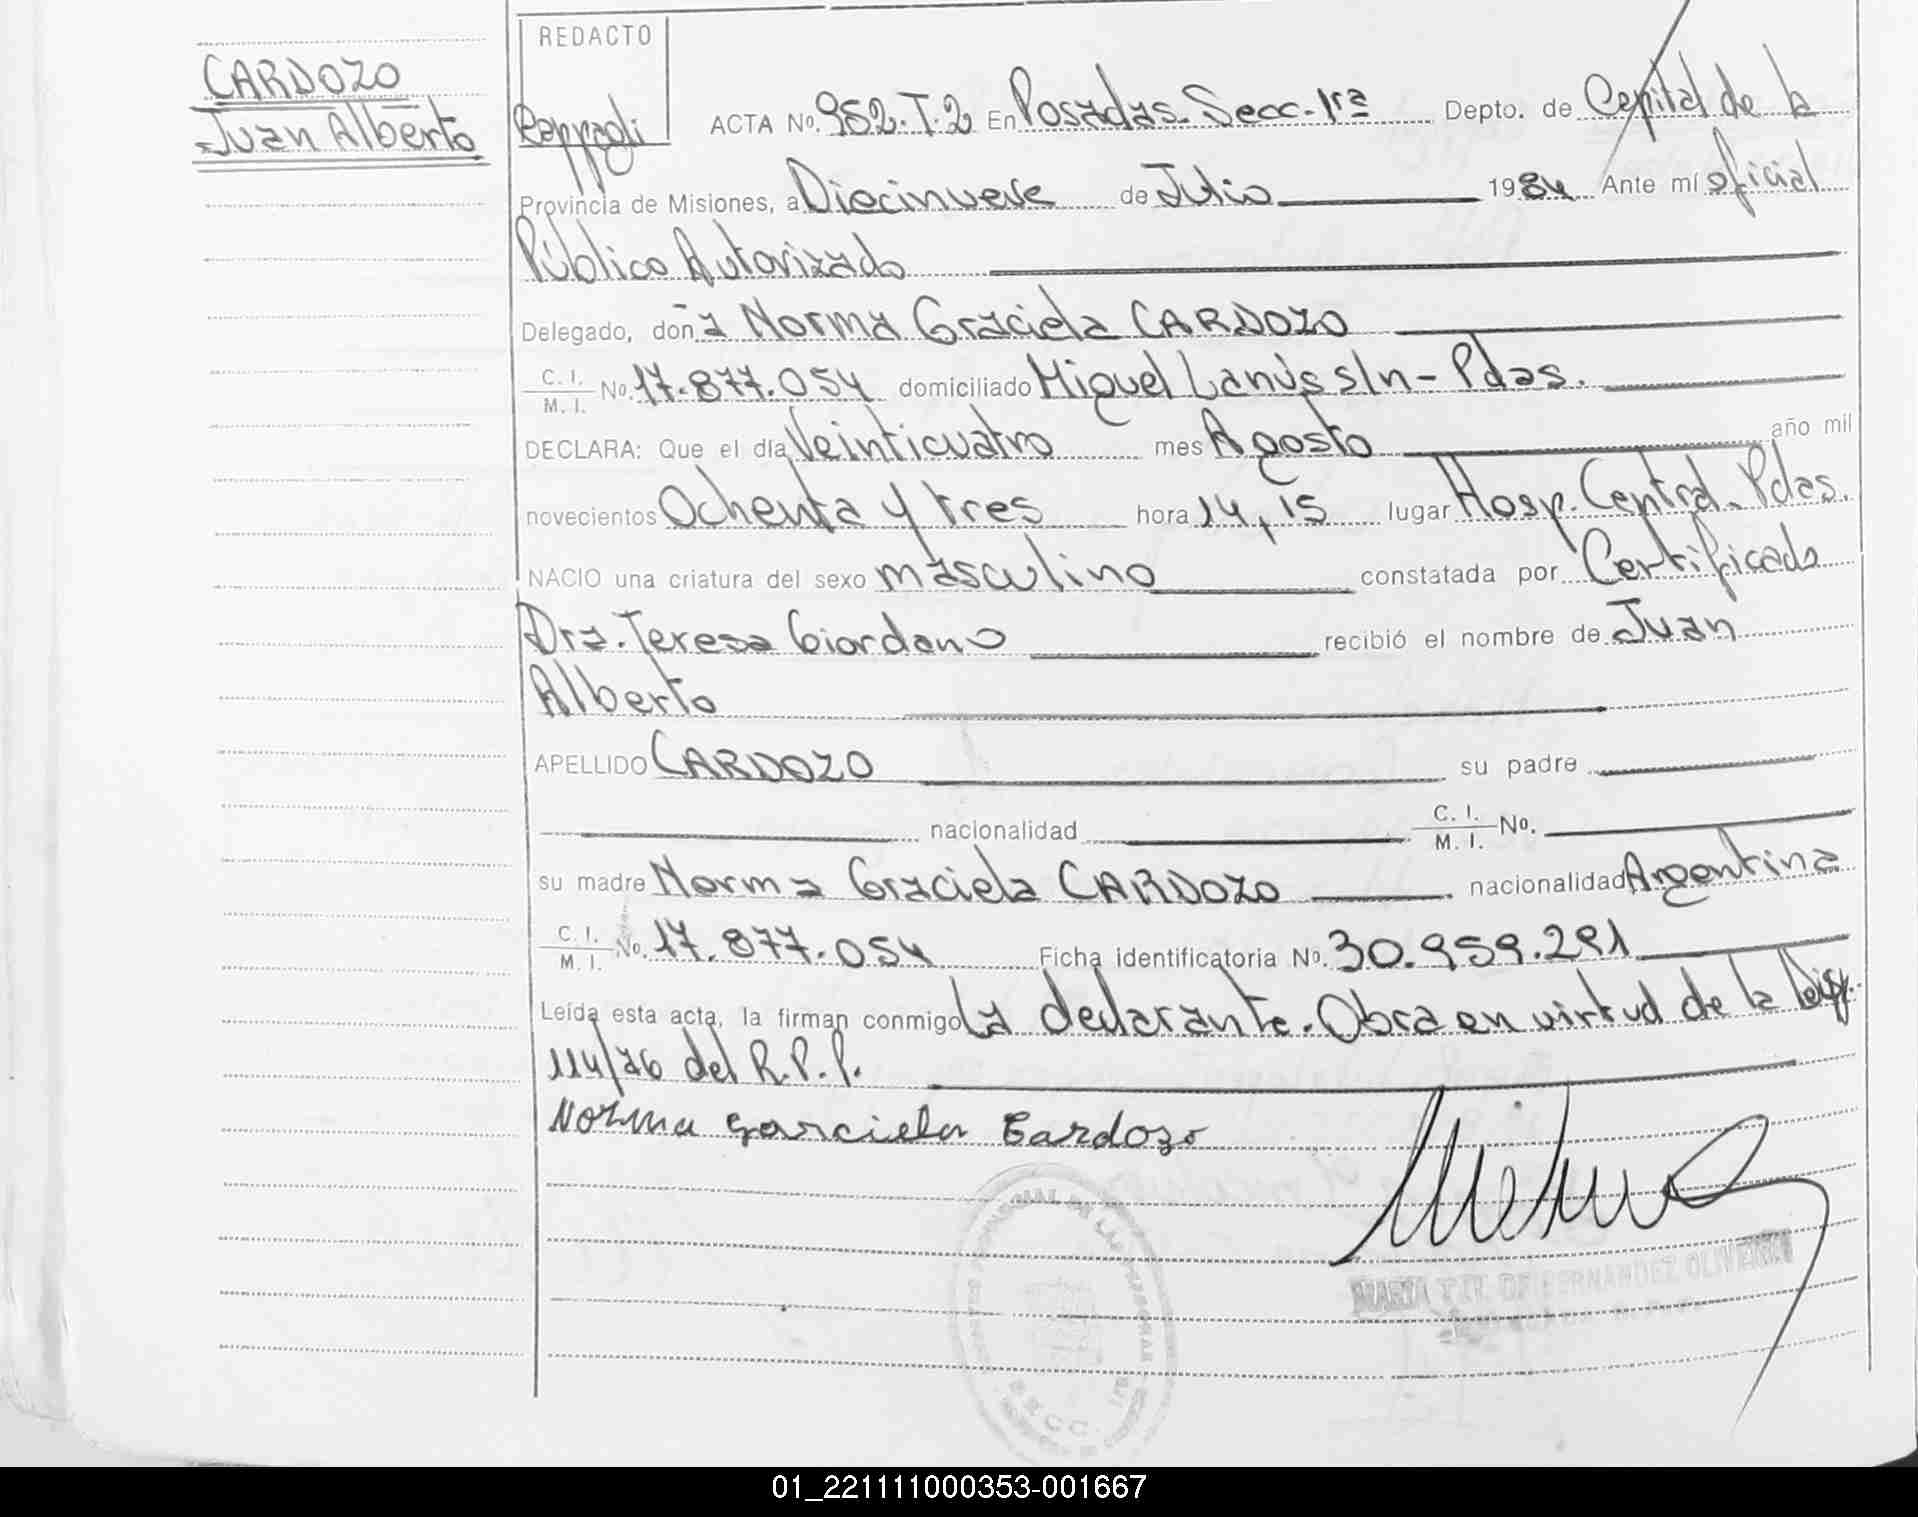 CARDOZO
Juan Alberto
REDACTO
ACTA No. 952.T.2 En Posadas-Secc.1ra Depto. de Capital de la
Provincia de Misiones, a Diecinueve de Julio 1984 Ante mí oficial
Público Autorizado
Delegado, doña Norma Graciela CARDOZO
C. I. M. I. No. 17.877.054 domiciliado Miguel Lanús s/n - Pdas.
DECLARA: Que el día Veinticuatro mes Agosto año mil
novecientos Ochenta y tres hora 14,15 lugar Hosp. Central. Pdas.
NACIO una criatura del sexo masculino constatada por Certificado
Dra. Teresa Giordano recibió el nombre de Juan
Alberto
APELLIDO CARDOZO su padre
nacionalidad C. I. M. I. No.
su madre Norma Graciela CARDOZO nacionalidad Argentina
C. I. M. I. No. 17.877.054 Ficha identificatoria No. 30.959.291
Leída esta acta, la firman conmigo La declarante. Obra en virtud de la Disp.
114/76 del R.P.P.
Norma Garciela Cardozo
DE FERNANDEZ OLIVEIRA
01_221111000353-001667